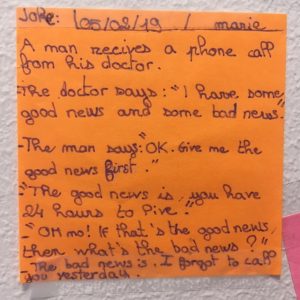 Joke: 05/08/19 / marie
A man recives a phone call
from his doctor.
-The doctor says: "I have some
good news and some bad news."
-The man says: "OK. Give me the
good news first."
-"The good news is, you have
24 hours to live."
-"OH no! If that's the good news,
then what's the bad news?"
-The bad news is. I forgot to call
you yesterday.